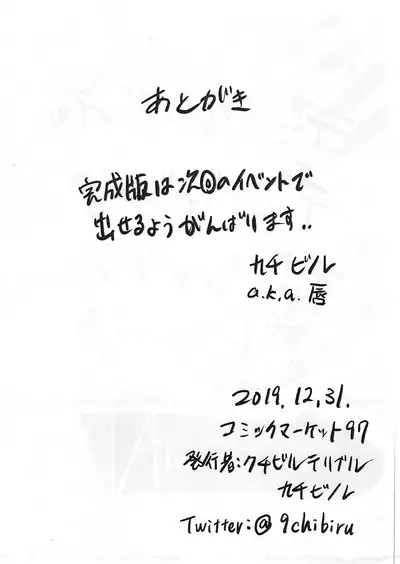 あとがき
完成版は次回のイベントで
出せるようがんばります..
カチビル
a.k.a. 唇
2019.12.31.
コミックマーケット97
発行者:クチビルテリブル
カチビル
Twitter:@9chibiru